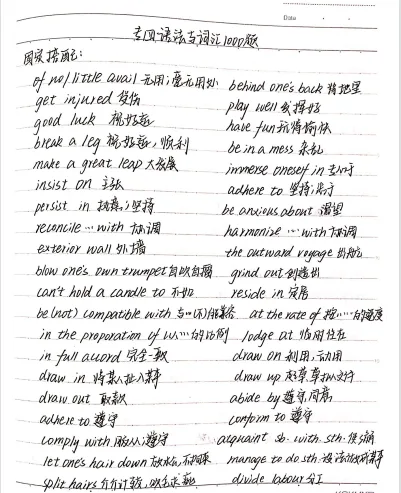 Date
专四语法与词汇1000题
固定搭配:
of no/little avail 无用;毫无用处 behind one's back 背地里
get injured 受伤 play well 发挥好
good luck 祝好运 have fun 玩得愉快
break a leg 祝好运,顺利 be in a mess 杂乱
make a great leap 大发展 immerse oneself in 专心于
insist on 主张 adhere to 坚持;遵守
persist in 执意;坚持 be anxious about 渴望
reconcile … with 协调 harmonise … with 协调
exterior wall 外墙 the outward voyage 出航
blow one's own trumpet 自吹自擂 grind out 创造出
can't hold a candle to 不如 reside in 定居
be (not) compatible with 与…(不)能兼容 at the rate of 按……的速度
in the proporation of 以…的比例 lodge at 临时住在
in full accord 完全一致 draw on 利用,动用
draw in 将某人扯入某事 draw up 起草文件
draw out 取款 abide by 遵守,同意
adhere to 遵守 conform to 遵守
comply with 服从;遵守 acquaint sb. with sth. 使
let one's hair down 放松, manage to do sth. 设法做成某事
split hairs 斤斤计较, divide labour 分工